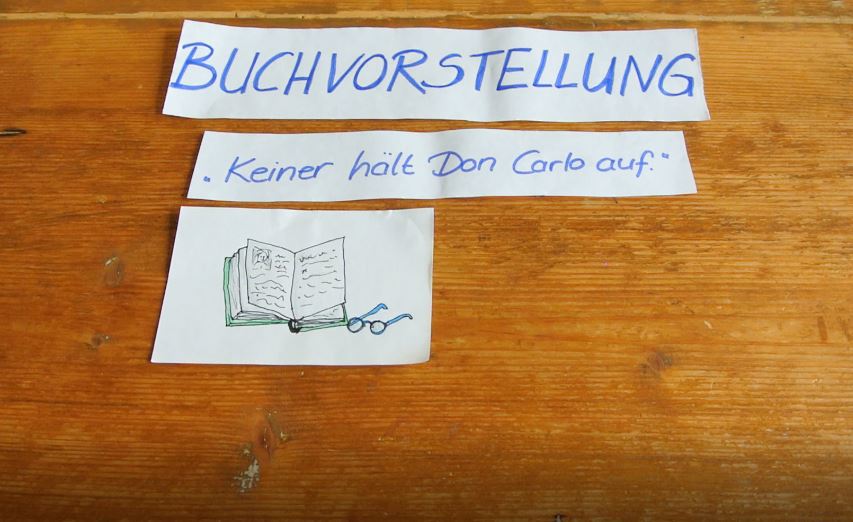 BUCHVORSTELLUNG
"Keiner hält Don Carlo auf."